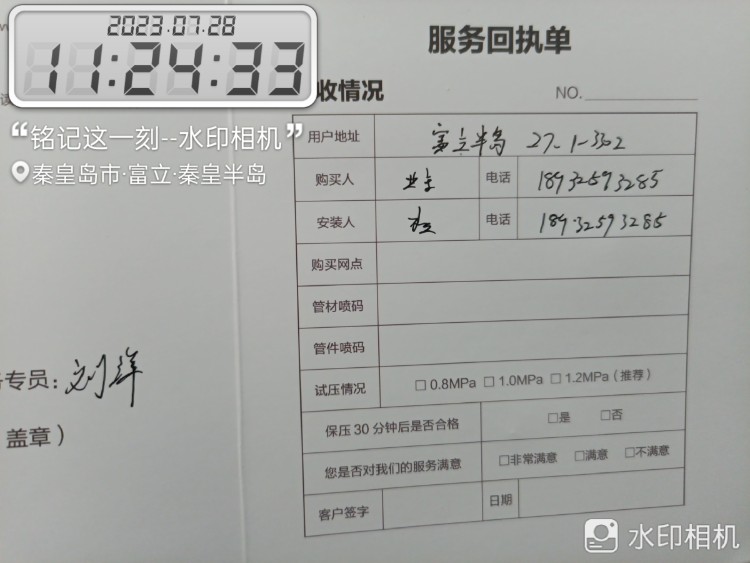 2023.07.28
11:24:33
“铭记这一刻--水印相机”
秦皇岛市·富立·秦皇半岛
服务回执单
收情况
NO.
用户地址 富立半岛 27-1-302
购买人 业主 电话 18932593285
安装人 电话 18932593285
购买网点
管材喷码
管件喷码
试压情况 □0.8MPa □1.0MPa □1.2MPa(推荐)
保压30分钟后是否合格 □是 □否
您是否对我们的服务满意 □非常满意 □满意 □不满意
客户签字 日期
专员:刘洋
盖章)
水印相机